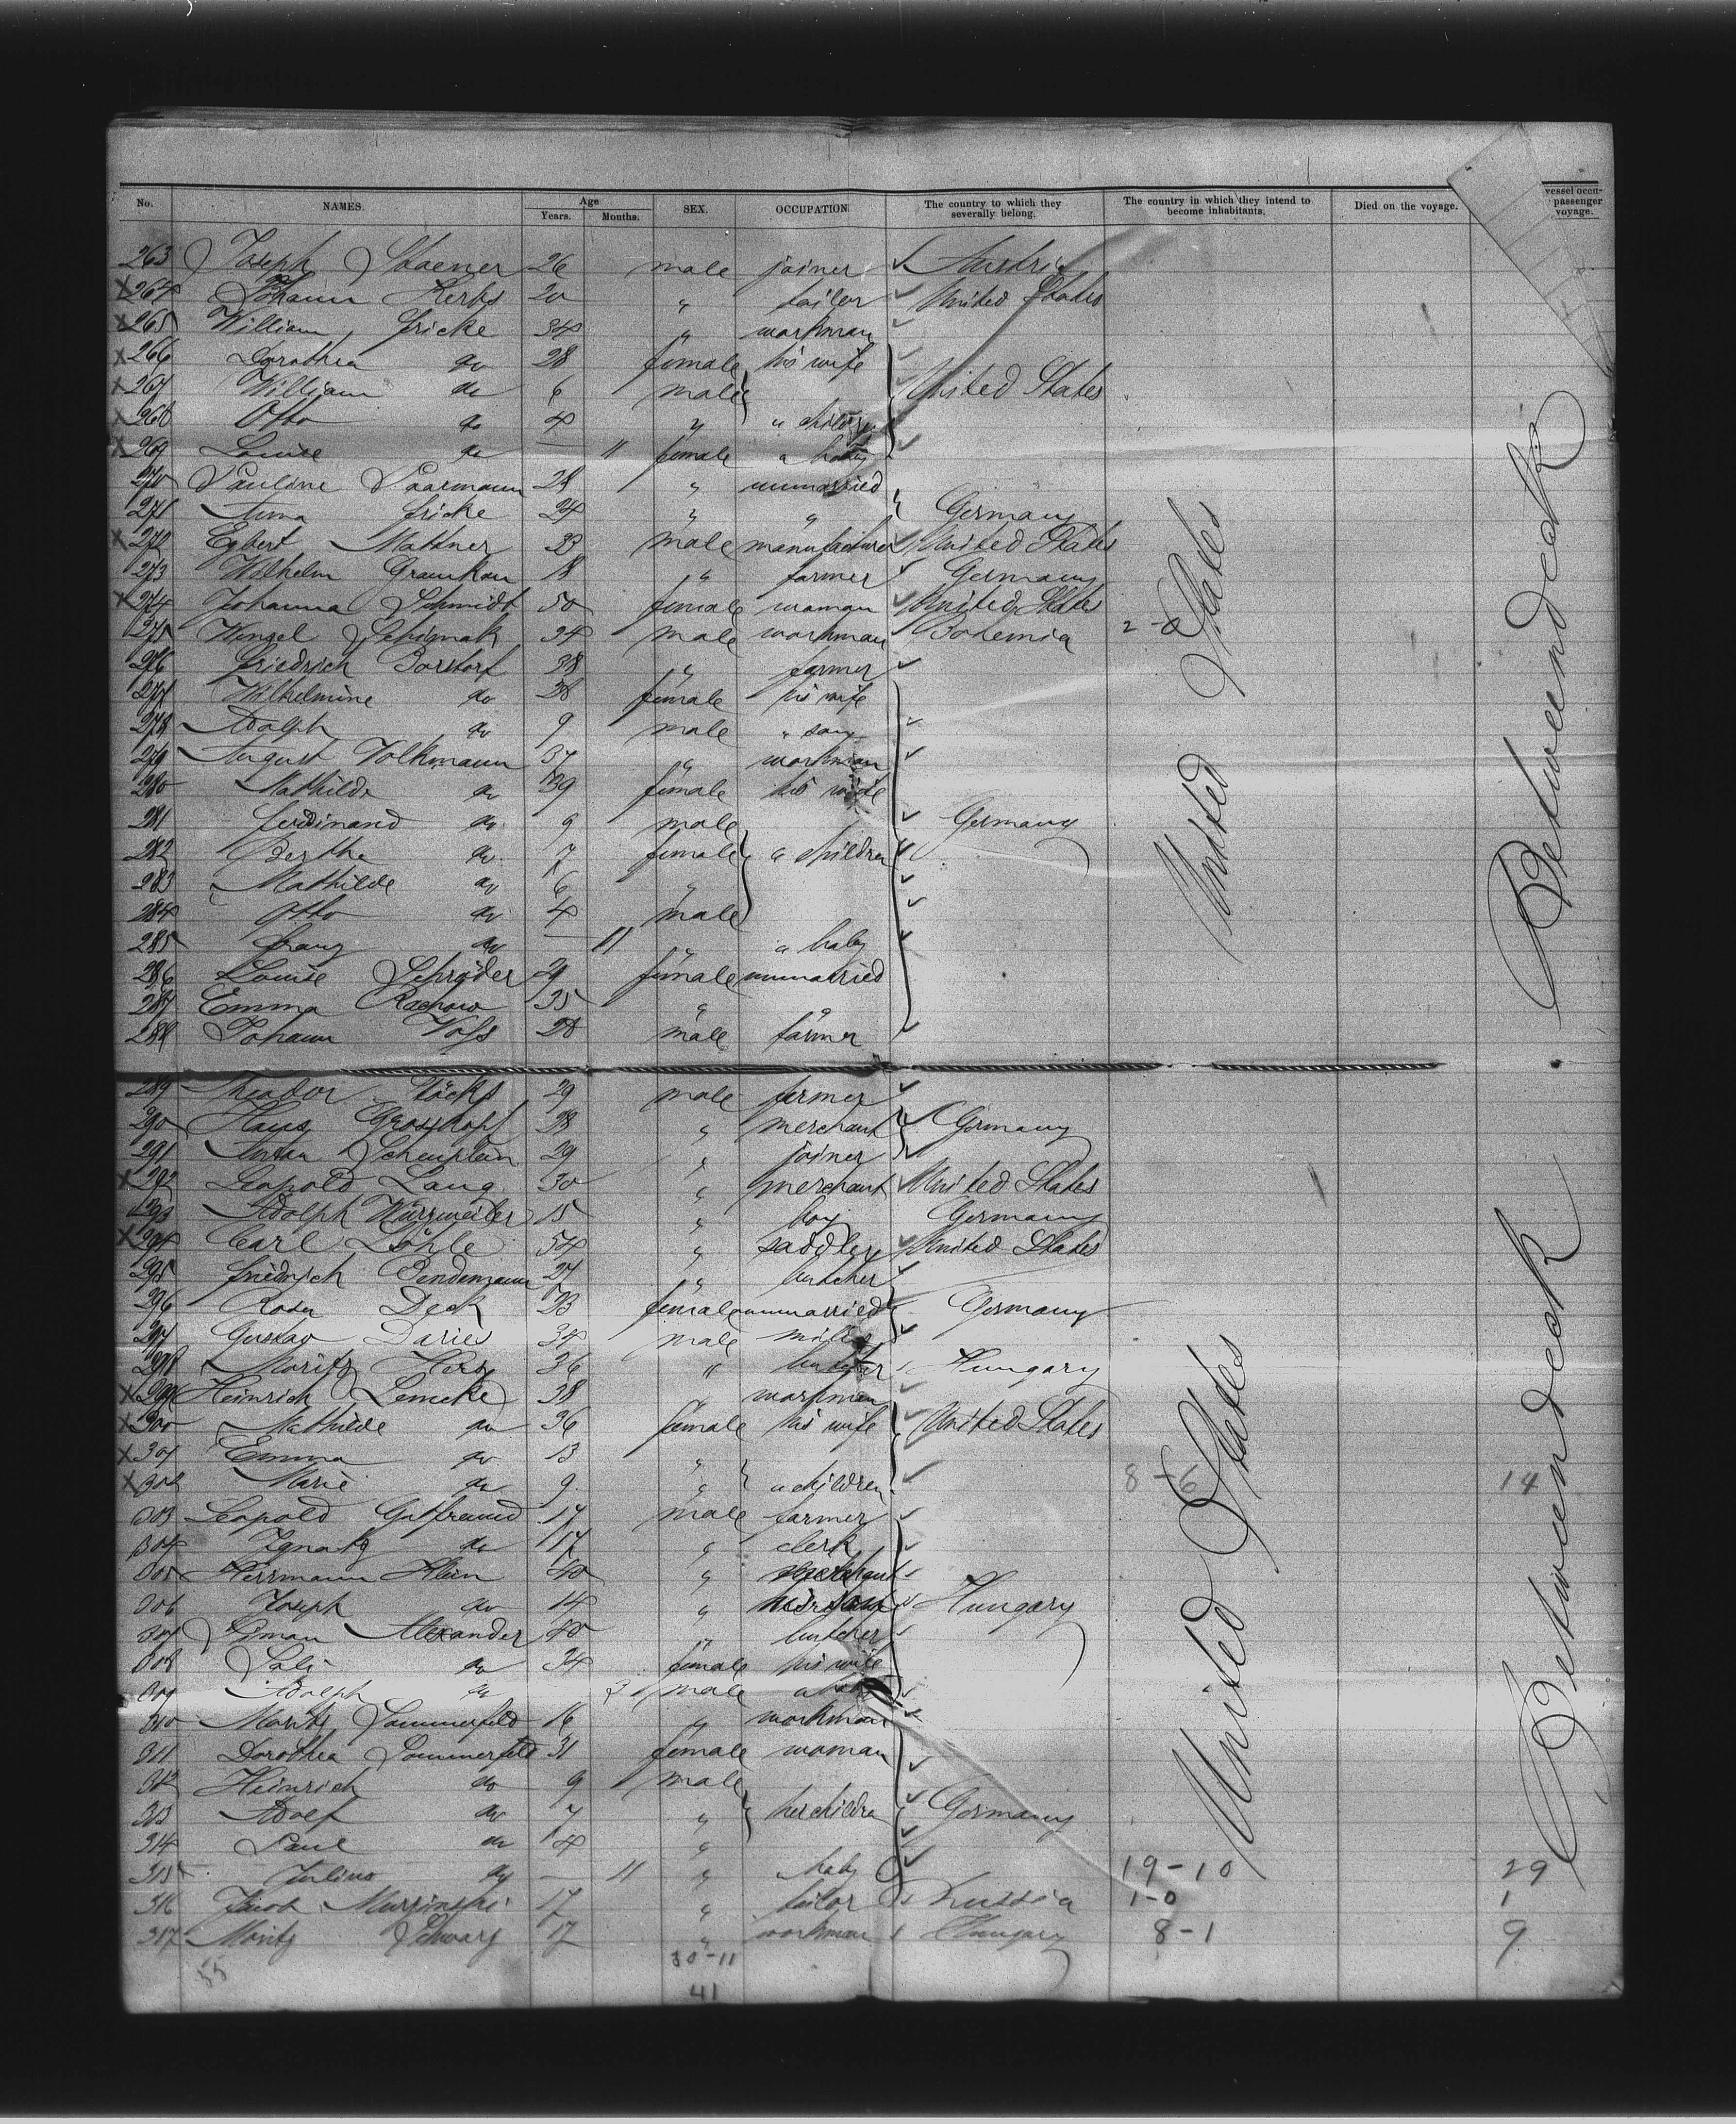 No. NAMES. Age Years. Months. SEX. OCCUPATION The country to which they severally belong. The country in which they intend to become inhabitants. Died on the voyage. vessel occu- passenger voyage.
263 Joseph 26 male joiner Austria
X 264 Johann Kerbs 20 " tailor United States
X 265 William Fricke 34 " workman
X 266 Dorothea do 28 female his wife
X 267 William do 6 male United States
X 268 Otto do 4 " " children
X 269 Louise do — 11 female a baby
270 Pauline Paarmann 28 " unmarried
271 Anna Fricke 24 " " Germany
X 272 Egbert Mattner 33 male manufacturer United States
273 Wilhelm 18 " farmer Germany
X 274 Johanna Schmidt 50 female woman United States
275 Wenzel 34 male workman Bohemia 2-0
276 Friedrich Borstorf 38 " farmer
277 Wilhelmine do 38 female his wife
278 Adolph do 9 male " son
279 August Volkmann 37 " workman
280 Mathilde do 39 female his wife
281 Ferdinand do 9 male Germany
282 Bertha do 7 female " children
283 Mathilde do 6 "
284 Otto do 4 male
285 Franz do — 11 " " baby
286 Louise Schröder 29 female unmarried
287 Emma Rachow 35 " "
288 Johann Voss 28 male farmer
United States
Betweendeck
289 Theodor 29 male farmer
290 Hans Grosskopf 38 " merchant Germany
291 Anton Scheuplein 29 " joiner
X 292 Leopold Lang 30 " merchant United States
293 Adolph Würzweiler 15 " boy Germany
X 294 Carl Löhle 54 " saddler United States
295 Friedrich Bendemann 27 " butcher
296 Rosa Deck 23 female unmarried Germany
297 Gustav Daries 34 male miller
298 Moritz Herz 36 " butcher Hungary
X 299 Heinrich Lemcke 38 " workman
X 300 Mathilde do 36 female his wife United States
X 301 Emma do 13 "
X 302 Marie do 9 " " children 8-6 14
303 Leopold Gutfreund 17 male farmer
304 Ignatz do 17 " clerk
305 Herrmann Klein 40 " merchant
306 Joseph do 14 " his son Hungary
307 Siman Alexander 40 " butcher
308 Sali do 34 female his wife
309 Adolph do 3 male a baby
310 Moritz Sommerfeld 16 " workman
311 Dorothea Sommerfeld 31 female woman
312 Heinrich do 9 male
313 Adolf do 7 " her children Germany
314 Paul do 4 "
315 Julius do — 11 " baby 19-10 29
316 Jacob 17 " tailor Russia 1-0 1
317 Moritz Schwarz 17 " workman Hungary 8-1 9
United States
Betweendeck
55 30-11
41